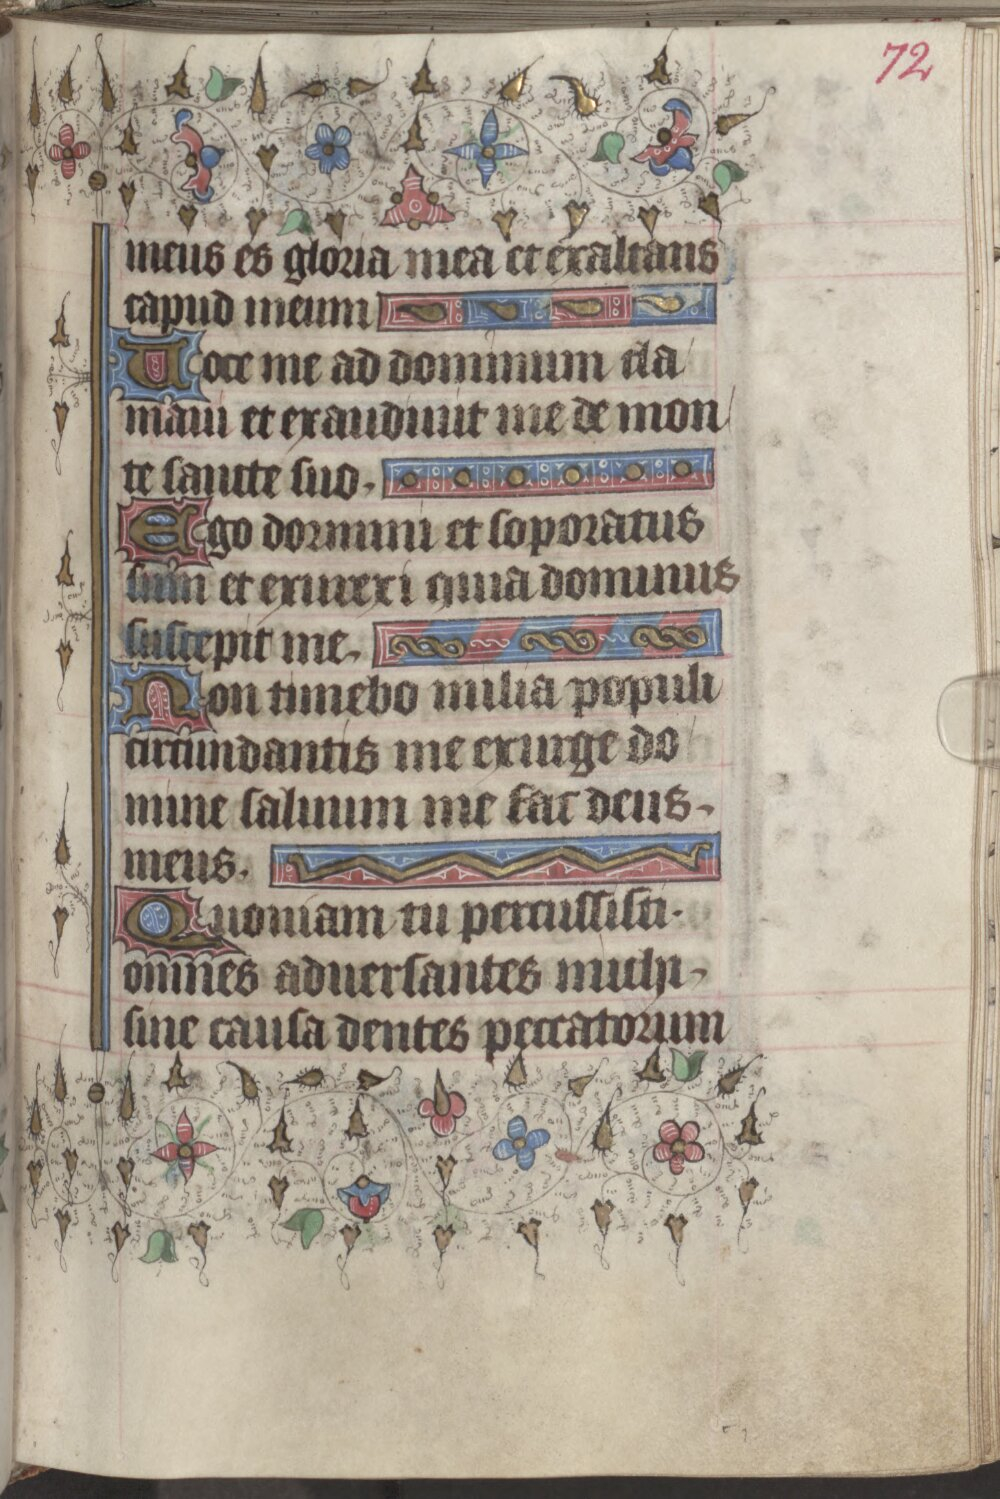 72
meus es gloria mea et exaltans
capud meum
Uoce me ad dominum cla
maui et exaudiuit me de mon
te sancte suo.
Ego dormiui et soporatus
sum et exurexi quia dominus
suscepit me.
Non timebo milia populi
circundantis me exurge do
mine saluum me fac deus
meus.
Quoniam tu percussisti
omnes aduersantes michi
sine causa dentes peccatorum